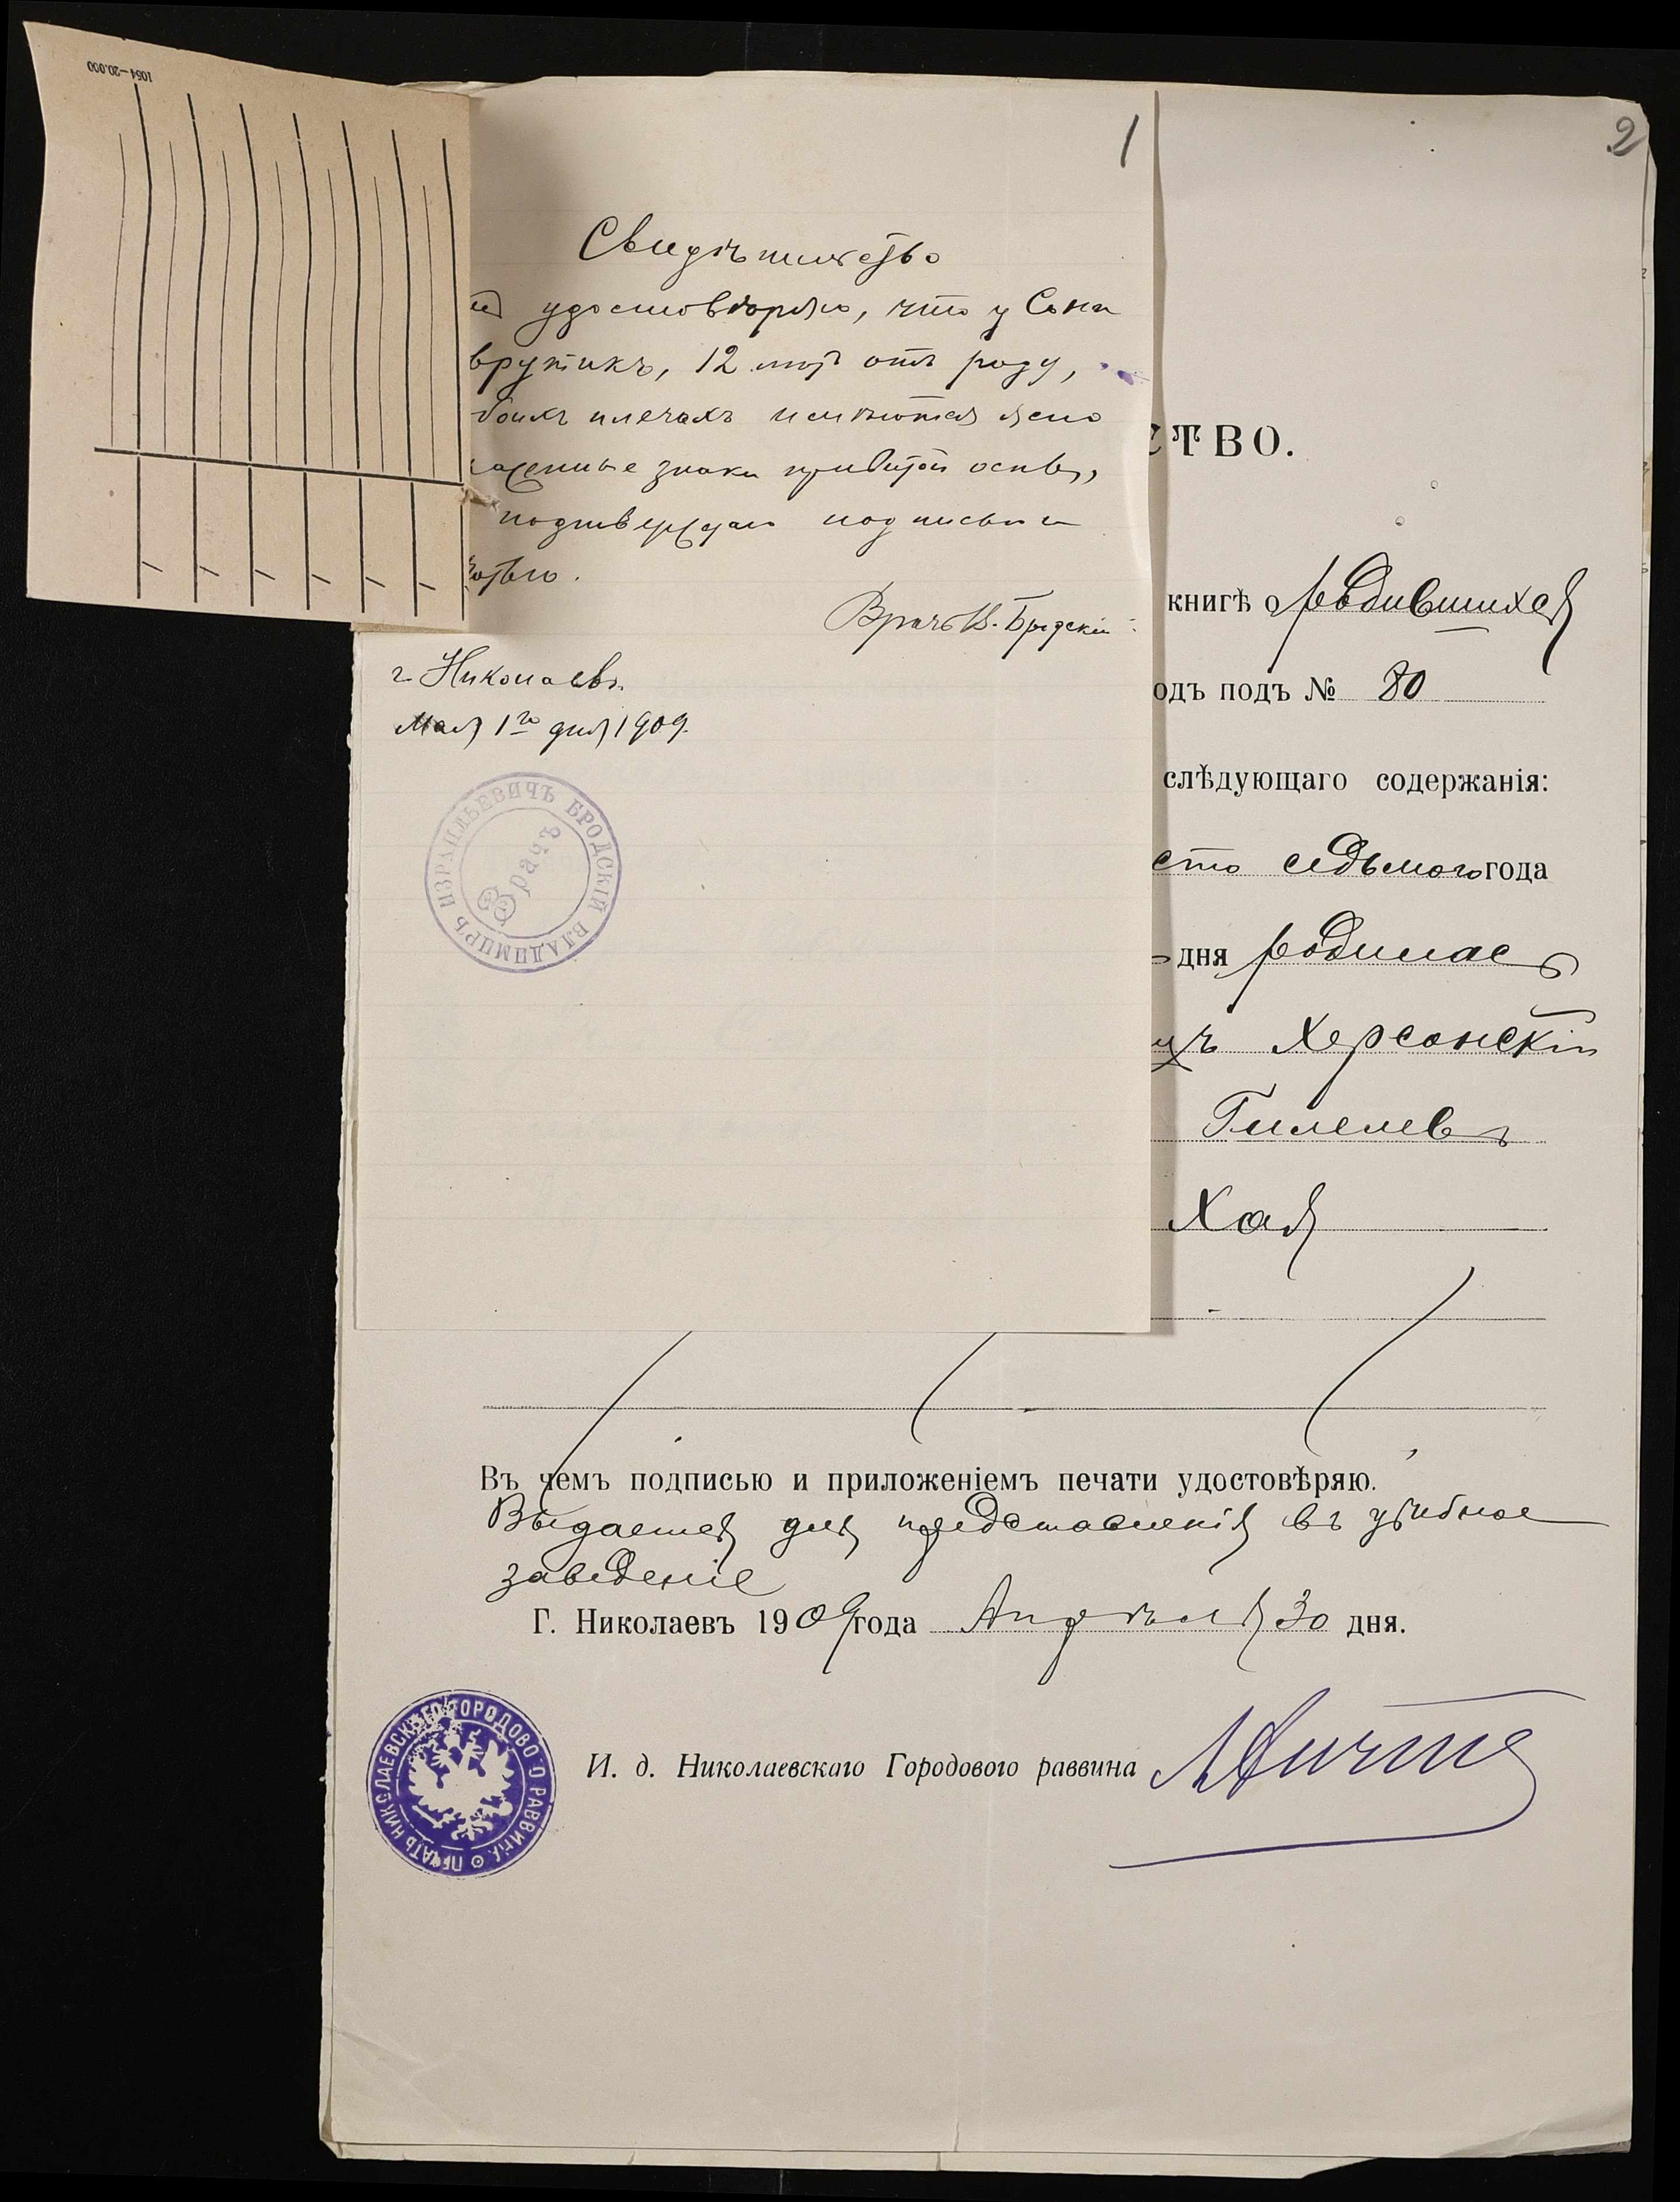 1054—20.000
1
Свидѣтельство
удостовѣряю, что у Сони
врутикъ, 12 лѣтъ отъ роду,
боихъ плечахъ имѣются ясно
женные знаки привитой оспы,
подтверждаю подписью и
г. Николаевъ.
Врачъ В. Бродскій
Мая 1го дня 1909.
ВЛАДИМІРЪ ИЗРАИЛЬЕВИЧЪ БРОДСКІЙ
Врачъ
2
СТВО.
книгѣ о родившихся
одъ подъ № 80
слѣдующаго содержанія:
сто седьмого года
дня родилась
Херсонскій
Гилелевъ
Хая
Въ чемъ подписью и приложеніемъ печати удостовѣряю.
Выдается для представленія въ учебное
заведеніе
Г. Николаевъ 1909 года Апрѣля 30 дня.
И. д. Николаевскаго Городового раввина
ПЕЧАТЬ НИКОЛАЕВСКАГО ГОРОДОВОГО РАВВИНА